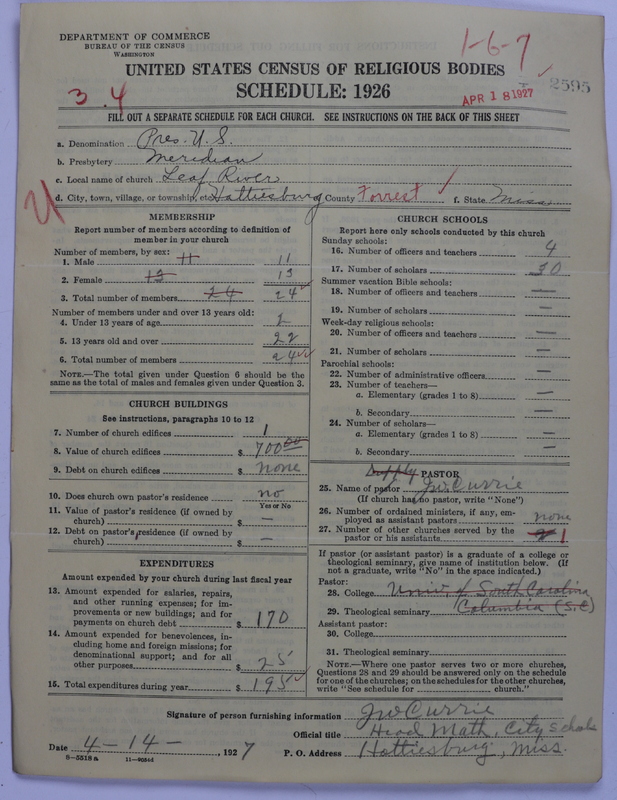 DEPARTMENT OF COMMERCE
BUREAU OF THE CENSUS
WASHINGTON
1-6-7
UNITED STATES CENSUS OF RELIGIOUS BODIES
SCHEDULE: 1926
3.4
APR 18 1927
2595
FILL OUT A SEPARATE SCHEDULE FOR EACH CHURCH. SEE INSTRUCTIONS ON THE BACK OF THIS SHEET
a. Denomination Pres. U.S.
b. Presbytery Meridian
c. Local name of church Leaf River
d. City, town, village, or township, etc. Hattiesburg County Forrest f. State Miss.
MEMBERSHIP
Report number of members according to definition of member in your church
Number of members, by sex:
1. Male 11 11
2. Female 13 13
3. Total number of members 24 24
Number of members under and over 13 years old:
4. Under 13 years of age 2
5. 13 years old and over 22
6. Total number of members 24
NOTE.—The total given under Question 6 should be the same as the total of males and females given under Question 3.
CHURCH BUILDINGS
See instructions, paragraphs 10 to 12
7. Number of church edifices 1
8. Value of church edifices $ 700 00
9. Debt on church edifices $ none
10. Does church own pastor's residence no
Yes or No
11. Value of pastor's residence (if owned by church) $ —
12. Debt on pastor's residence (if owned by church) $ —
EXPENDITURES
Amount expended by your church during last fiscal year
13. Amount expended for salaries, repairs, and other running expenses; for improvements or new buildings; and for payments on church debt $ 170
14. Amount expended for benevolences, including home and foreign missions; for denominational support; and for all other purposes $ 25
15. Total expenditures during year $ 195
CHURCH SCHOOLS
Report here only schools conducted by this church
Sunday schools:
16. Number of officers and teachers 4
17. Number of scholars 30
Summer vacation Bible schools:
18. Number of officers and teachers —
19. Number of scholars —
Week-day religious schools:
20. Number of officers and teachers —
21. Number of scholars —
Parochial schools:
22. Number of administrative officers —
23. Number of teachers—
a. Elementary (grades 1 to 8) —
b. Secondary —
24. Number of scholars—
a. Elementary (grades 1 to 8) —
b. Secondary —
Supply PASTOR
25. Name of pastor Jw Currie
(If church has no pastor, write "None")
26. Number of ordained ministers, if any, employed as assistant pastors none
27. Number of other churches served by the pastor or his assistants 1
If pastor (or assistant pastor) is a graduate of a college or theological seminary, give name of institution below. (If not a graduate, write "No" in the space indicated.)
Pastor:
28. College Univ. of South Carolina
29. Theological seminary Columbia (S.C)
Assistant pastor:
30. College
31. Theological seminary
NOTE.—Where one pastor serves two or more churches, Questions 28 and 29 should be answered only on the schedule for one of the churches; on the schedules for the other churches, write "See schedule for church."
Signature of person furnishing information Jw Currie
Official title Head Math, City Schools
Date 4-14-, 1927 P. O. Address Hattiesburg, Miss.